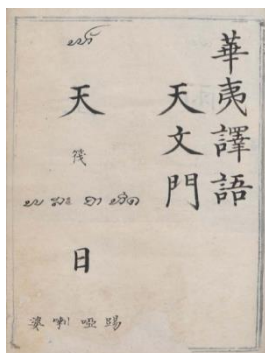 華夷譯語
天文門
天
筏
日
婆喇啞踢